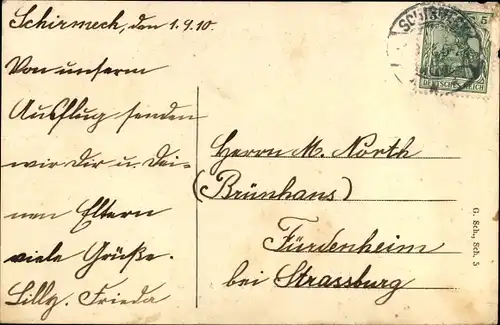 Schirmeck, den 1.9.10.
Von unserm
Ausflug senden
wir Dir u. Dei-
nen Eltern
viele Grüße.
Lilly. Frieda
SCHIRMECK
5
DEUTSCHES REICH
Herrn M. North
(Brünhans)
Fürdenheim
bei Strassburg
G. Sch., Sch. 5